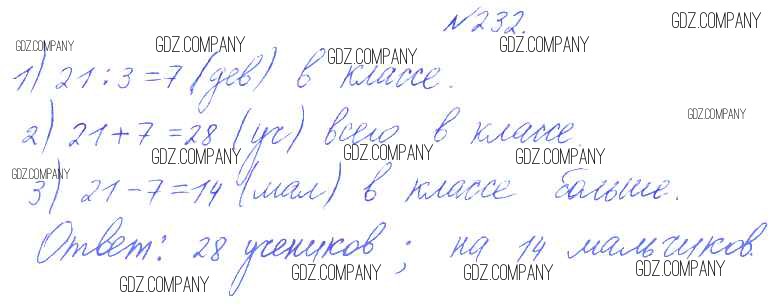 №232.
1) 21:3=7 (дев) в классе.
2) 21+7=28 (уч) всего в классе
3) 21-7=14 (мал) в классе больше.
Ответ: 28 учеников; на 14 мальчиков.
GDZ.COMPANY GDZ.COMPANY GDZ.COMPANY GDZ.COMPANY
GDZ.COMPANY
GDZ.COMPANY
GDZ.COMPANY GDZ.COMPANY GDZ.COMPANY
GDZ.COMPANY
GDZ.COMPANY GDZ.COMPANY GDZ.COMPANY
GDZ.COMPANY